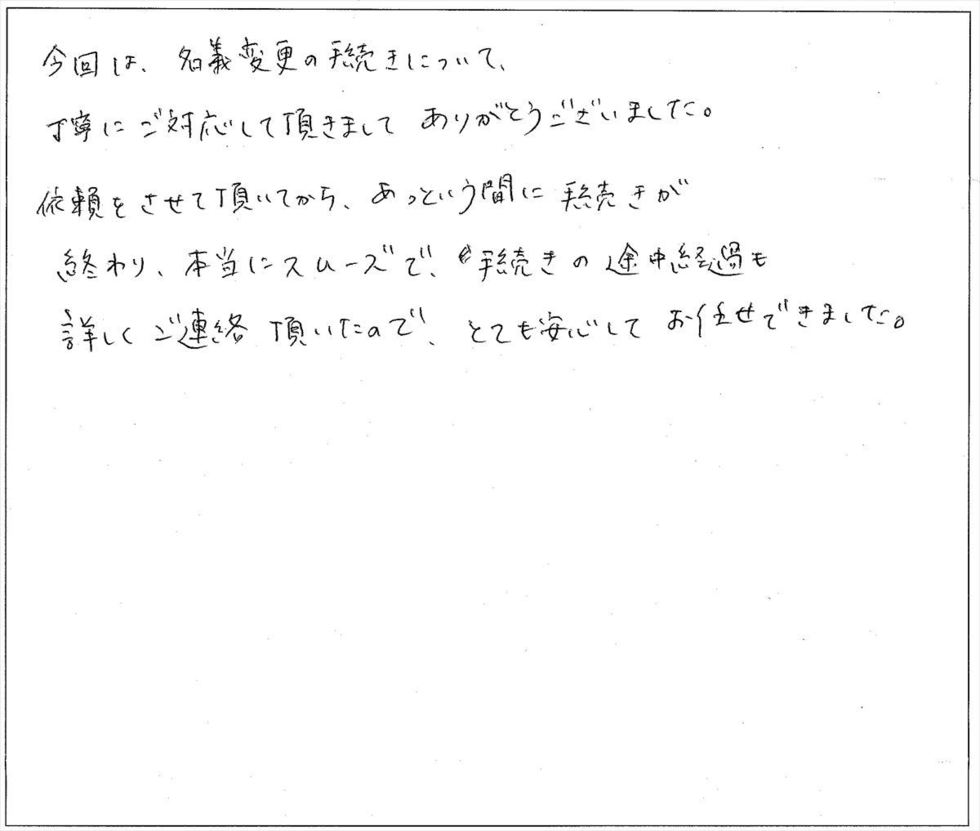 今回は、名義変更の手続きについて、
丁寧にご対応して頂きまして ありがとうございました。
依頼をさせて頂いてから、あっという間に 手続きが
終わり、本当にスムーズで、手続きの途中経過も
詳しくご連絡頂いたので、とても安心してお任せできました。